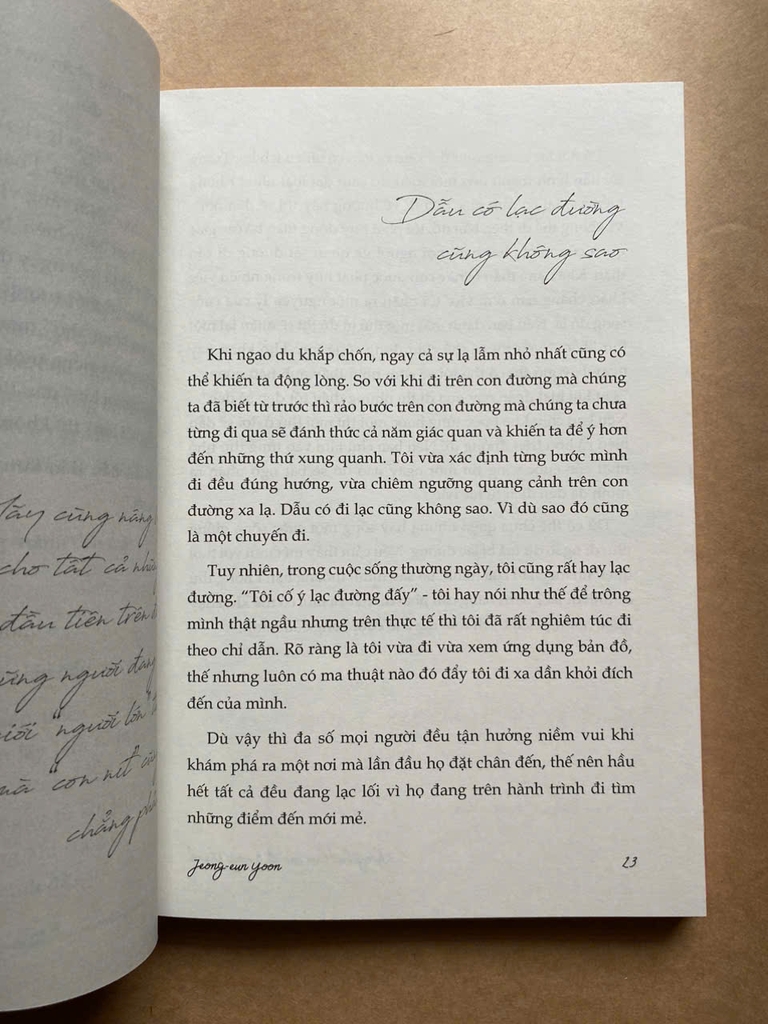 Tãy cùng nâng
cho tất cả nhữ
đầu tiên trên
ững người đang
giới "người lớn"
và "con nít"
chẳng ph
Dẫu có lạc đường
cũng không sao
Khi ngao du khắp chốn, ngay cả sự lạ lẫm nhỏ nhất cũng có
thể khiến ta động lòng. So với khi đi trên con đường mà chúng
ta đã biết từ trước thì rảo bước trên con đường mà chúng ta chưa
từng đi qua sẽ đánh thức cả năm giác quan và khiến ta để ý hơn
đến những thứ xung quanh. Tôi vừa xác định từng bước mình
đi đều đúng hướng, vừa chiêm ngưỡng quang cảnh trên con
đường xa lạ. Dẫu có đi lạc cũng không sao. Vì dù sao đó cũng
là một chuyến đi.
Tuy nhiên, trong cuộc sống thường ngày, tôi cũng rất hay lạc
đường. “Tôi cố ý lạc đường đấy” - tôi hay nói như thế để trông
mình thật ngầu nhưng trên thực tế thì tôi đã rất nghiêm túc đi
theo chỉ dẫn. Rõ ràng là tôi vừa đi vừa xem ứng dụng bản đồ,
thế nhưng luôn có ma thuật nào đó đẩy tôi đi xa dần khỏi đích
đến của mình.
Dù vậy thì đa số mọi người đều tận hưởng niềm vui khi
khám phá ra một nơi mà lần đầu họ đặt chân đến, thế nên hầu
hết tất cả đều đang lạc lối vì họ đang trên hành trình đi tìm
những điểm đến mới mẻ.
Jeong-eun Yoon
23